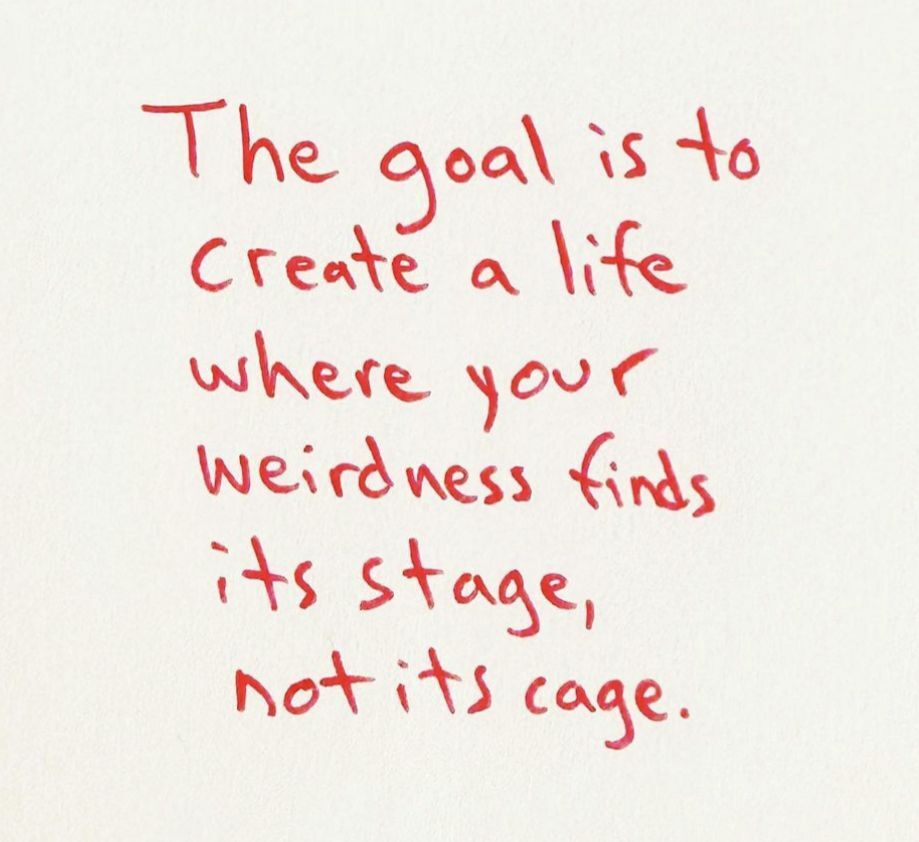 The goal is to
create a life
where your
weirdness finds
its stage,
not its cage.